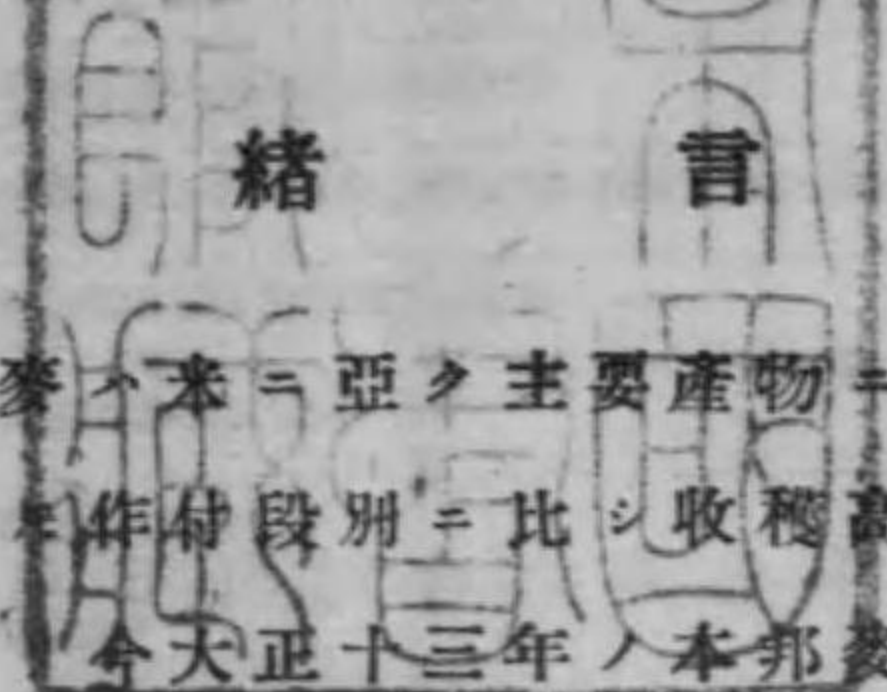 緒言
麥ハ米ニ亞ク主要産物ニ
作付段別ニ比シ收穫高
今大正十三年ノ本邦麥